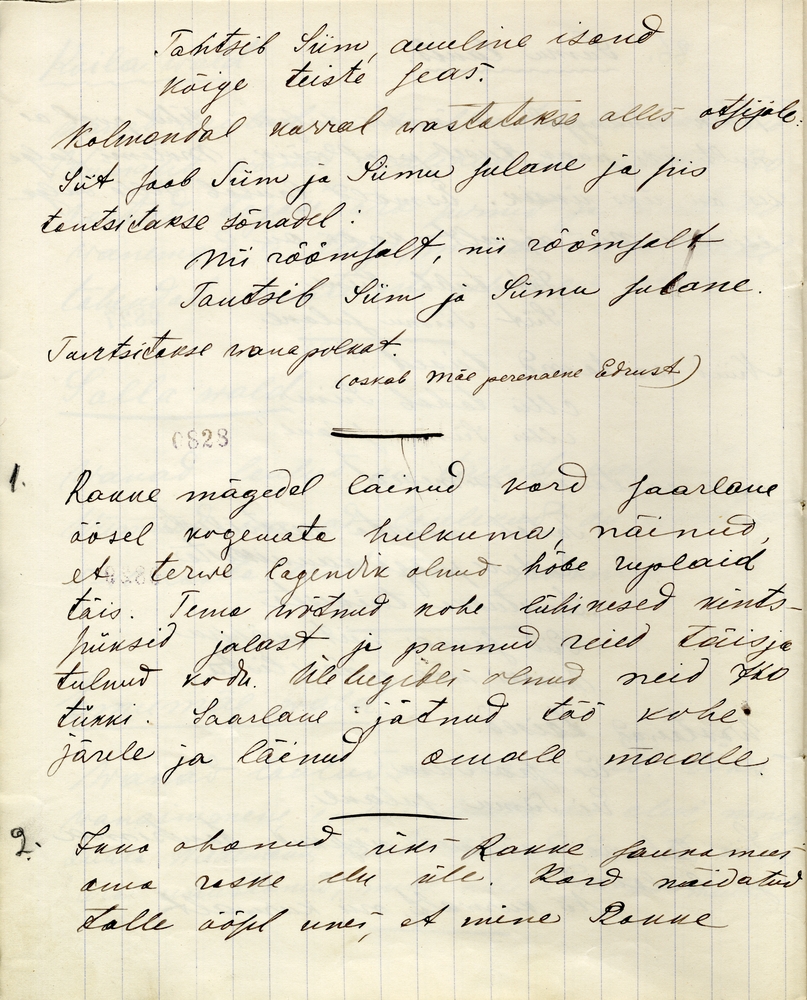 Tantsib Siim, auuline isand
kõige teiste seas.
Kolmandal korral wastatakse alles otsijale:
Siit saab Siim ja Siimu sulane ja siis
tantsitakse sõnadel:
Nii rõõmsalt, nii rõõmsalt
Tantsib Siim ja Siimu sulane.
Tantsitakse wana polkat.
(oskab Mäe perenaene Edrust)
0828
1. Rakke mägedel läinud kord saarlane
öösel kogemata hulkuma, näinud,
et terwe lagendik olnud hõbe ruplaid
täis. Tema wõtnud kohe lühikesed kints-
püksid jalast ja pannud need täis ja
tulnud kodu. Üle lugides olnud neid
tükki. Saarlane jätnud töö kohe
järele ja läinud omale maale.
2. Ikka ohanud üks Rakke saunamees
oma raske elu üle. Kord näidatud
talle öösel unes, et mine Rakke